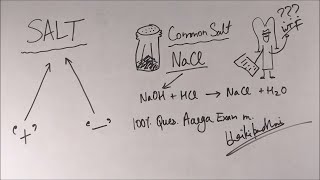 SALT
"+"
"–"
Common Salt
NaCl
NaOH + HCl → NaCl + H₂O
100% Ques. Aayga Exam m
???
WTF